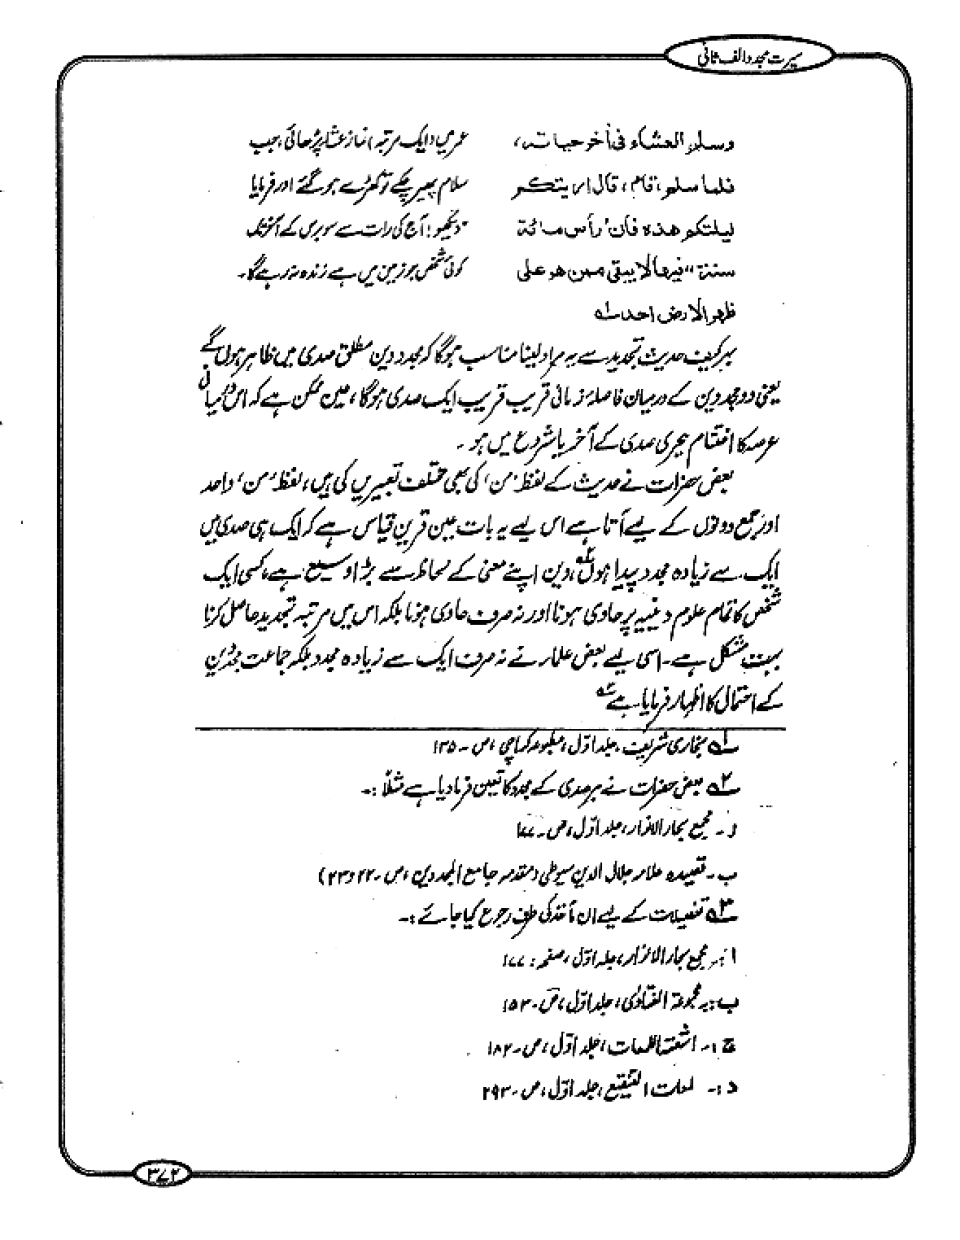 سیرت مجدد الف ثانی
وسلم العشاء فی أخر حیاتہ، عمر میں (ایک مرتبہ) نماز عشاء پڑھائی، جب
فلما سلم، قام، قال ارایتکم سلام پھیر چکے تو کھڑے ہو گئے اور فرمایا
لیلتکم ھذہ فان رأس مائة دیکھو! آج کی رات سے سو برس کے آخر تک
سنة منھا لا یبقی ممن ھو علی کوئی شخص جو زمین میں ہے زندہ نہ رہے گا۔
ظھر الارض احد ۱؎
بہر کیف حدیث تجدید سے یہ مراد لینا مناسب ہوگا کہ مجدد دین مطلق صدی میں ظاہر ہوں گے
یعنی دو مجددین کے درمیان فاصلۂ زمانی قریب قریب ایک صدی ہوگا، عین ممکن ہے کہ اس درمیانی
عرصہ کا اختتام ہجری صدی کے آخر یا شروع میں ہو ۔
بعض حضرات نے حدیث کے لفظ ’من‘ کی بھی مختلف تعبیریں کی ہیں، لفظ ’من‘ واحد
اور جمع دونوں کے لیے آتا ہے اس لیے یہ بات عین قرین قیاس ہے کہ ایک ہی صدی میں
ایک سے زیادہ مجدد پیدا ہوں ۲؎، دین اپنے معنی کے لحاظ سے بڑا وسیع ہے، کسی ایک
شخص کا تمام علوم دینیہ پر حاوی ہونا اور نہ صرف حاوی ہونا بلکہ اس میں مرتبہ تجدید حاصل کرنا
بہت مشکل ہے۔ اسی لیے بعض علماء نے نہ صرف ایک سے زیادہ مجدد بلکہ جماعت مجددین
کے احتمال کا اظہار فرمایا ہے ۳؎
۱؎ بخاری شریف، جلد اوّل، مطبوعہ کراچی، ص۔ ۱۳۵
۲؎ بعض حضرات نے ہر صدی کے مجدد کا تعین فرما دیا ہے مثلاً :۔
ا۔ مجمع بحار الانوار، جلد اوّل، ص۔ ۱۷۷
ب۔ قصیدہ علامہ جلال الدین سیوطی (مقدمہ جامع المجددین، ص۔ ۲۲ و ۲۳)
۳؎ تفصیلات کے لیے ان مآخذ کی طرف رجوع کیا جائے :۔
ا :۔ مجمع بحار الانوار، جلد اوّل، صفحہ : ۱۷۷
ب :۔ مجموعۃ الفتاوٰی، جلد اوّل، ص۔ ۱۵۳
ج :۔ اشعۃ اللمعات، جلد اوّل، ص۔ ۱۸۲
د :۔ لمعات التنقیح، جلد اوّل، ص۔ ۲۹۳
۳۷۲